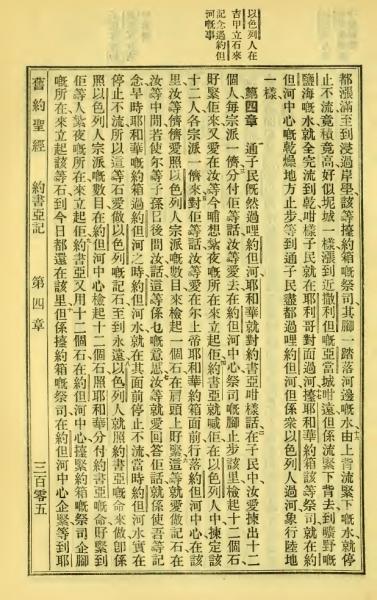 以色列人在
吉甲立石來
記念過約但
河嘅事
都漲滿至到浸過岸該等擡約箱嘅祭司其腳一踏落河邊嘅水由上背流緊下嘅水就停
止不流竟積竟高好似坭城一樣漲到近撒利但嘅亞當城咁遠但係流緊下背去到曠野嘅
鹽海嘅水就全完流到乾咁樣子民就在耶利哥對面過河擡耶和華約箱該等祭司就在約
但河中心嘅乾燥地方止步等到通子民盡都過哩約但河但係衆以色列人過河象行陸地
一樣
第四章 通子民既然過哩約但河耶和華就對約書亞咁樣話在子民中汝愛揀出十二
個人每宗派一儕分付佢等話汝等愛去在約但河中心祭司嘅腳止步該里檢起十二個石
好緊佢來又愛在汝等今晡想紮夜嘅所在來立起佢約書亞就喊佢在以色列人中揀定該
十二人各宗派一儕來對佢等話汝等愛在尔上帝耶和華約箱面前行落約但河中心在該
里汝等儕儕愛照以色列人宗派嘅數目來檢起一個石在肩頭上好緊這等就愛做記石在
汝等中間若使尔等子孫日後問汝話這等係乜嘅意思汝等就愛回答佢話就係使吾等記
念早時耶和華嘅約箱過約但河之時約但河水就在其面前停止不流當時約但河水實在
停止不流所以這等石愛做以色列嘅記石至到永遠以色列人就照約書亞嘅命來做卽係
照以色列人宗派嘅數目在約但河中心檢起十二個石照耶和華分付約書亞嘅命好緊到
佢等人紮夜嘅所在來立起佢約書亞又用十二個石在約但河中心擡緊約箱嘅祭司企腳
嘅所在來立起該等石到今日都還在該里但係擡約箱嘅祭司在約但河中心企緊等到耶
舊約聖經 約書亞記 第四章 三百零五